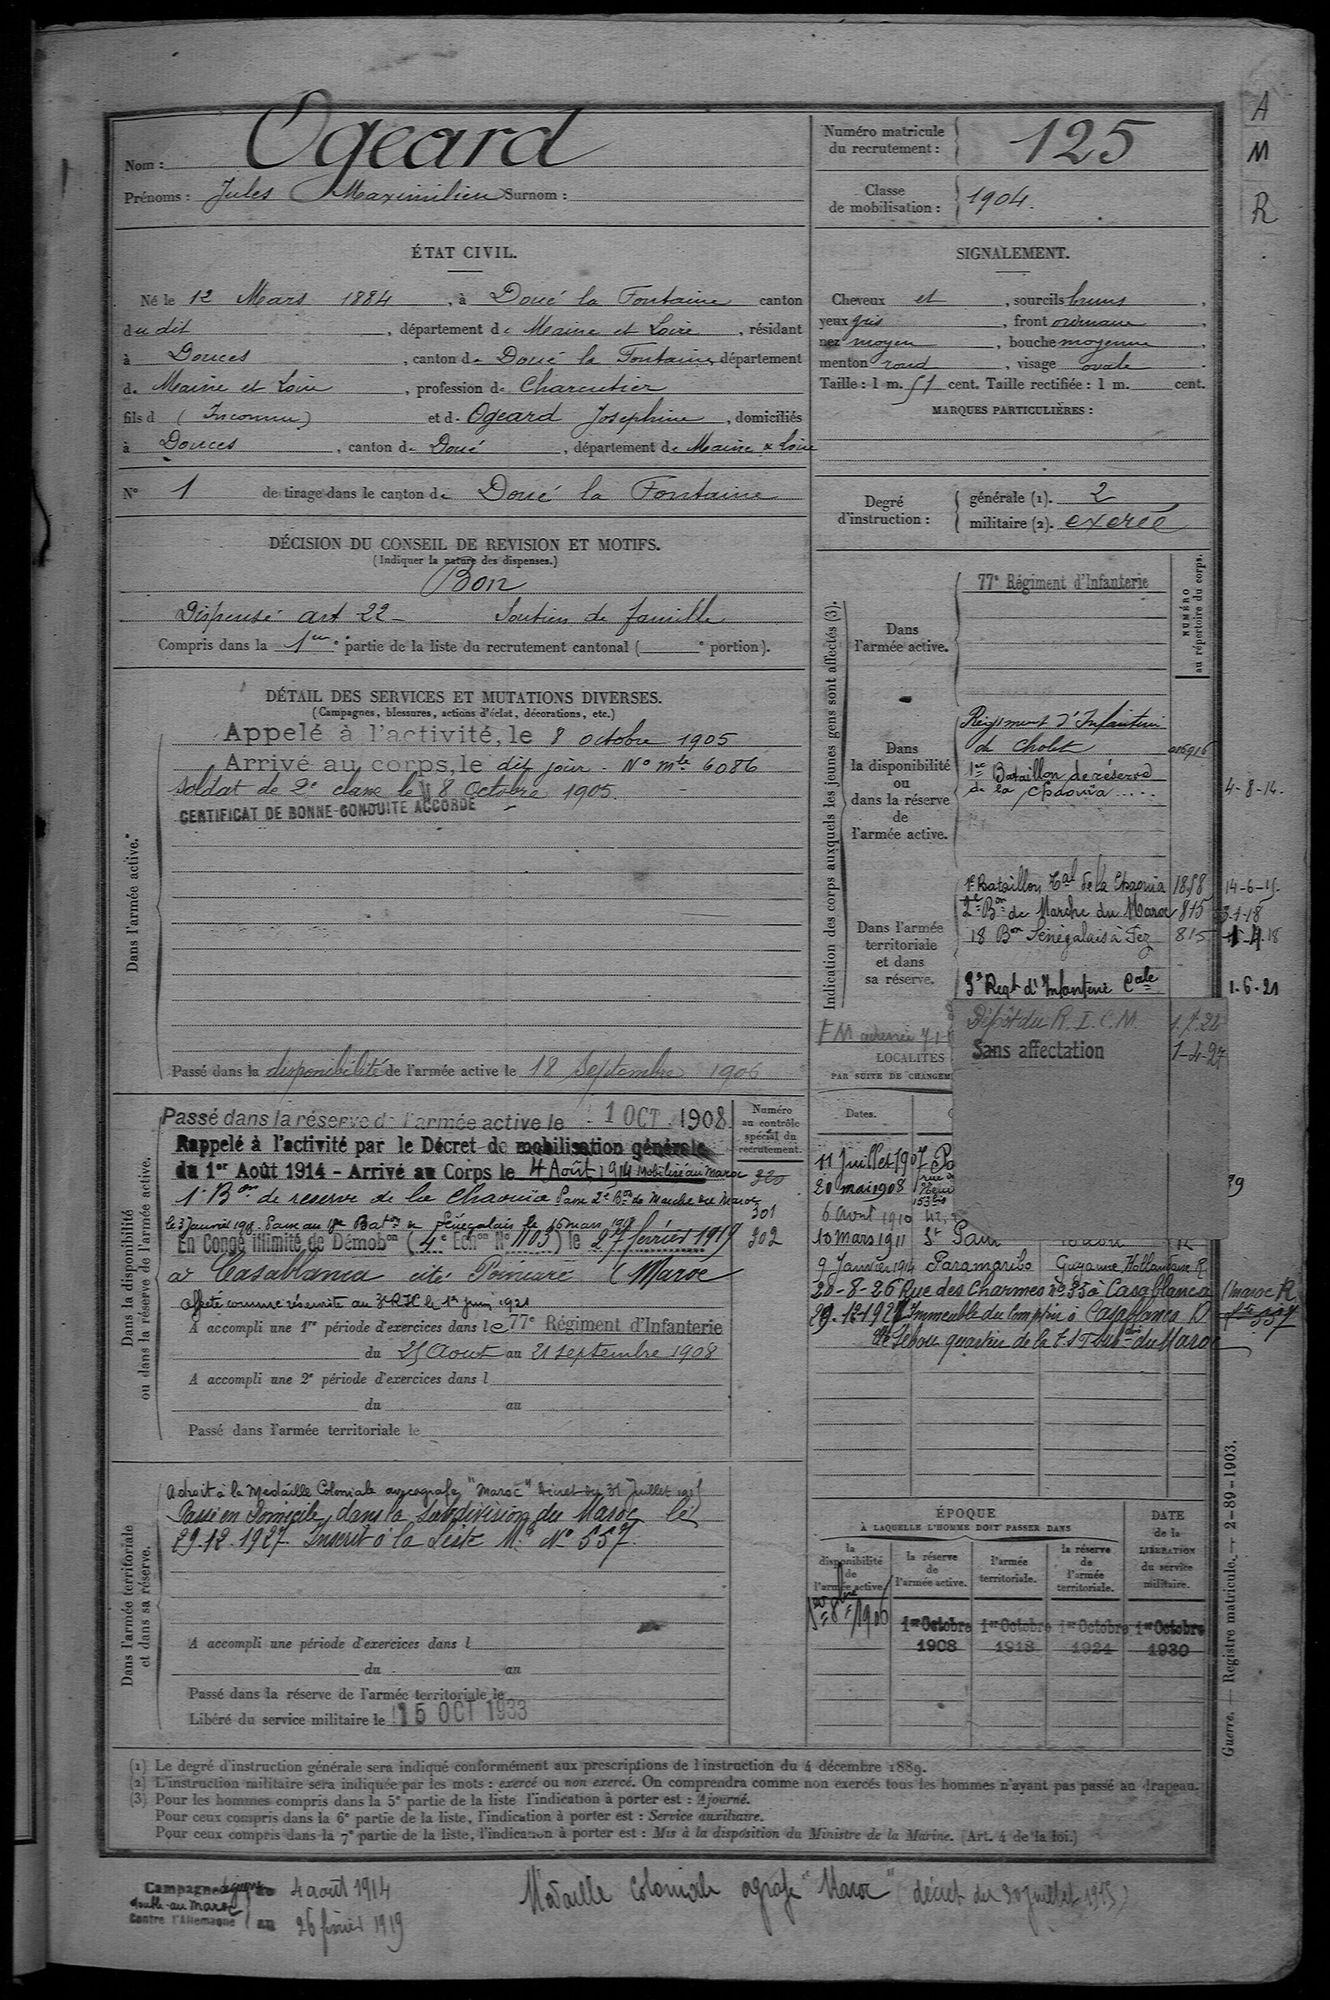 A
M
R
Nom : Ogeard
Prénoms : Jules Maximilien Surnom :
Numéro matricule du recrutement : 125
Classe de mobilisation : 1904.
ÉTAT CIVIL.
Né le 12 Mars 1884, à Doué la Fontaine canton
dudit, département de Maine et Loire, résidant
à Douces, canton de Doué la Fontaine, département
de Maine et Loire, profession de Charcutier
fils d (Inconnu) et d. Ogeard Joséphine, domiciliés
à Douces, canton de Doué, département de Maine & Loire
N° 1 de tirage dans le canton de Doué la Fontaine
SIGNALEMENT.
Cheveux et, sourcils bruns,
yeux gris, front ordinaire,
nez moyen, bouche moyenne,
menton rond, visage ovale.
Taille : 1 m. 51 cent. Taille rectifiée : 1 m. cent.
MARQUES PARTICULIÈRES :
Degré d'instruction :
générale (1). 2
militaire (2). exercé
DÉCISION DU CONSEIL DE REVISION ET MOTIFS.
(Indiquer la nature des dispenses.)
Bon
Dispensé art 22 - Soutien de famille
Compris dans la 1ère partie de la liste du recrutement cantonal ( e portion).
DÉTAIL DES SERVICES ET MUTATIONS DIVERSES.
(Campagnes, blessures, actions d'éclat, décorations, etc.)
Dans l'armée active.
Appelé à l'activité, le 8 octobre 1905
Arrivé au corps, le dit jour - N° mle 6086
soldat de 2e classe le 8 Octobre 1905.
CERTIFICAT DE BONNE CONDUITE ACCORDÉ
Passé dans la disponibilité de l'armée active le 18 Septembre 1906
Indication des corps auxquels les jeunes gens sont affectés (3).
NUMÉRO au répertoire du corps.
Dans l'armée active.
77e Régiment d'Infanterie
Dans la disponibilité ou dans la réserve de l'armée active.
Régiment d'Infanterie
de Cholet
1er Bataillon de réserve
de la Chaouia
4-8-14.
Dans l'armée territoriale et dans sa réserve.
1r Bataillon Cal de la Chaouia 1858 14-6-15.
2e Bon de Marche du Maroc 815 3-1-18
18 Bon Sénégalais à Fez 815 4.18
3e Regt d'Infanterie Cale 1-6-21
Dépôt du R.I.C.M.
Sans affectation 1-4-27
LOCALITÉS
PAR SUITE DE CHANGEM
Dates.
11 Juillet 1907
20 mai 1908
6 Avril 1910
10 mars 1911 St
9 Janvier 1914 Paramaribo Guyanne Hollandaise R.
20-8-26 Rue des Charmes n° 35 à Casablanca (maroc R
29.12.1927 Immeuble du Comptoir à Casablanca D
quartier de la du Maroc
Dans la disponibilité ou dans la réserve de l'armée active.
Passé dans la réserve de l'armée active le 1 OCT 1908
Numéro au contrôle spécial du recrutement.
Rappelé à l'activité par le Décret de mobilisation générale
du 1er Août 1914 - Arrivé au Corps le 4 Août 1914 Mobilisé au Maroc
1r Bon de réserve de la Chaouia Passé 2e Bon de Marche du Maroc 301
En Congé illimité de Démobon (4e Echon N° 1103) le 27 février 1919 302
à Casablanca cité Poincaré (Maroc
Affecté comme réserviste au 3e RIC le 1er juin 1921
A accompli une 1re période d'exercices dans le 77e Régiment d'Infanterie
du 25 Août au 21 septembre 1908
A accompli une 2e période d'exercices dans l
du au
Passé dans l'armée territoriale le
Dans l'armée territoriale et dans sa réserve.
A droit à la Médaille Coloniale avec agrafe "Maroc" Décret du 31 Juillet 1915
Passé en Domicile dans la Subdivision du Maroc le
29.12.1927. Inscrit à la Liste M. N° 557.
A accompli une période d'exercices dans l
du au
Passé dans la réserve de l'armée territoriale le
Libéré du service militaire le 15 OCT 1933
ÉPOQUE
À LAQUELLE L'HOMME DOIT PASSER DANS
la disponibilité de l'armée active.
la réserve de l'armée active.
l'armée territoriale.
la réserve de l'armée territoriale.
DATE de la LIBÉRATION du service militaire.
1er Octobre 1908
1er Octobre 1918
1er Octobre 1924
1er Octobre 1930
Guerre. — Registre matricule. — 2-89-1903.
(1) Le degré d'instruction générale sera indiqué conformément aux prescriptions de l'instruction du 4 décembre 1889.
(2) L'instruction militaire sera indiquée par les mots : exercé ou non exercé. On comprendra comme non exercés tous les hommes n'ayant pas passé au drapeau.
(3) Pour les hommes compris dans la 5e partie de la liste l'indication à porter est : Ajourné.
Pour ceux compris dans la 6e partie de la liste, l'indication à porter est : Service auxiliaire.
Pour ceux compris dans la 7e partie de la liste, l'indication à porter est : Mis à la disposition du Ministre de la Marine. (Art. 4 de la loi.)
Campagne
double au Maroc
contre l'Allemagne
4 août 1914
au 26 février 1919
Médaille Coloniale agrafe "Maroc" (décret du 30 juillet 1915)